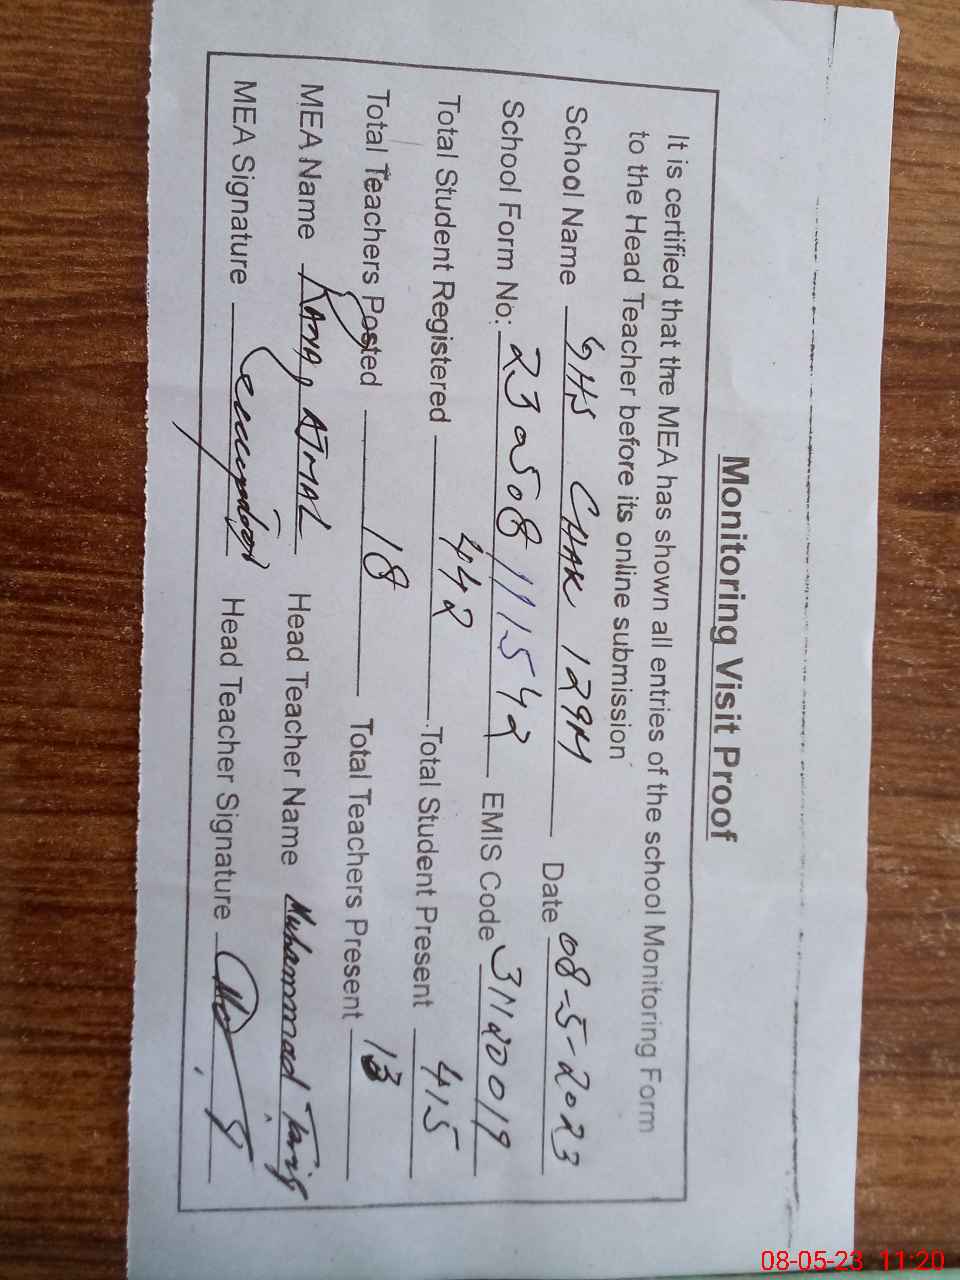 Monitoring Visit Proof
It is certified that the MEA has shown all entries of the school Monitoring Form
to the Head Teacher before its online submission
School Name GHS CHAK 129M Date 08-5-2023
School Form No: 23050811 11542 EMIS Code 31120019
Total Student Registered 442 Total Student Present 415
Total Teachers Posted 18 Total Teachers Present 13
MEA Name RANA AJMAL Head Teacher Name Muhammad Tariq
MEA Signature Head Teacher Signature
08-05-23 11:20